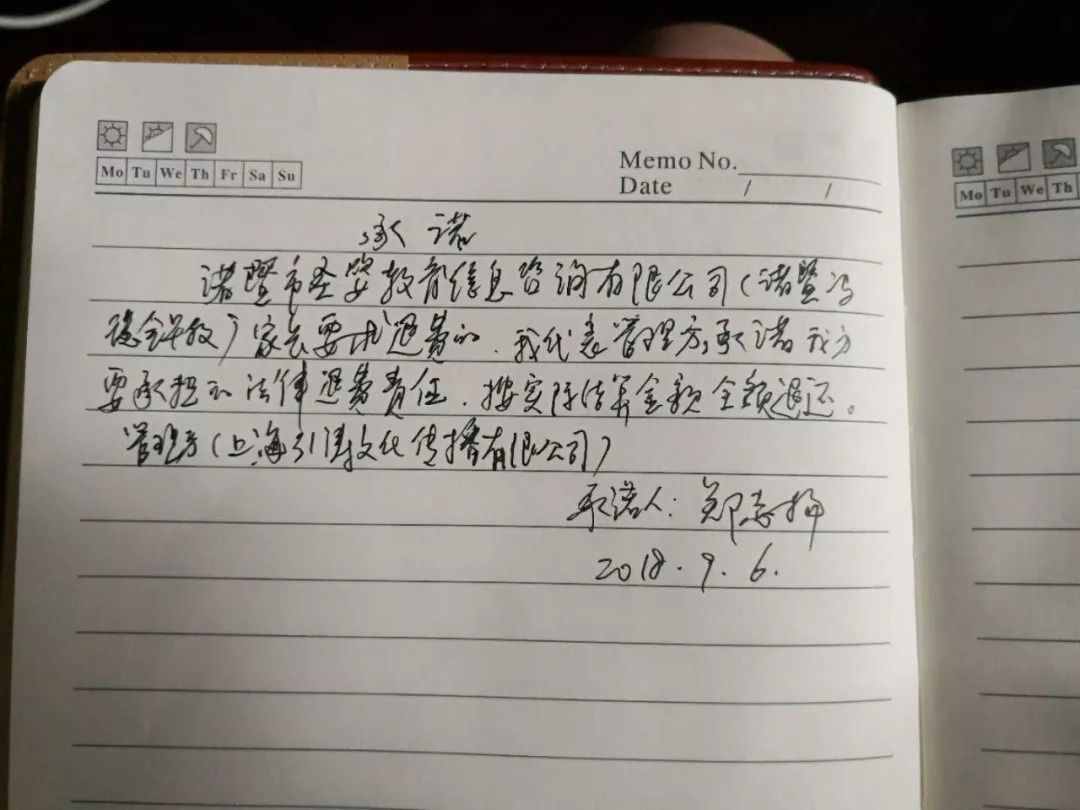 Mo Tu We Th Fr Sa Su
Memo No.
Date / /
承诺
诸暨市圣婴教育信息咨询有限公司(诸暨
早教)家长要求退费的.我代表管理方承诺我方
要承担的法律退费责任.按实际结算金额全额退还。
管理方(上海引博文化传播有限公司)
承诺人:郑志
2018.9.6.
Mo Tu We Th